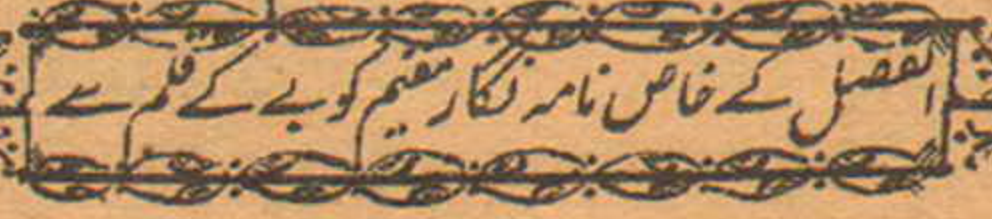 الفضل کے خاص نامہ نگار مقیم کوبے کے قلم سے